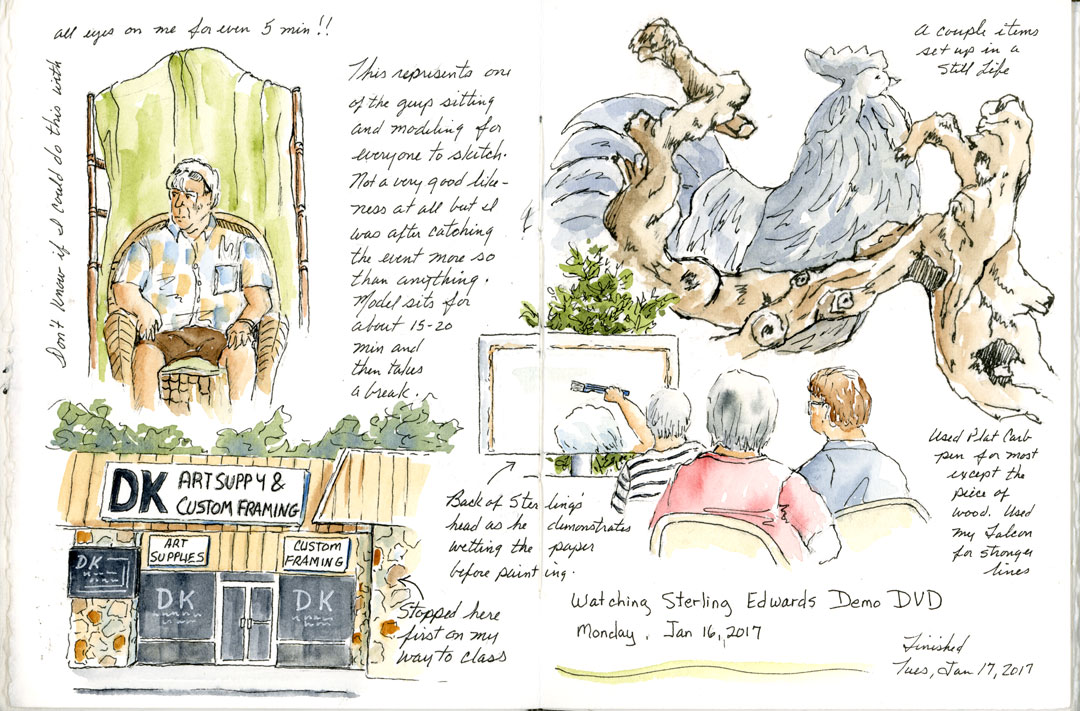 all eyes on me for even 5 min!!
Don't know if I could do this with
This represents one
of the guys sitting
and modeling for
everyone to sketch.
Not a very good like-
ness at all but I
was after catching
the event more so
than anything.
Model sits for
about 15-20
min and
then takes
a break.
DK ART SUPPY &
CUSTOM FRAMING
ART
SUPPLIES
CUSTOM
FRAMING
DK
DK
DK
Stopped here
first on my
way to class
A couple items
set up in a
Still Life
Back of Sterling's
head as he demonstrates
wetting the paper
before painting.
Used Plat Carb
pen for most
except the
piece of
wood. Used
my Falcon
for stronger
lines
Watching Sterling Edwards Demo DVD
Monday, Jan 16, 2017
Finished
Tues, Jan 17, 2017